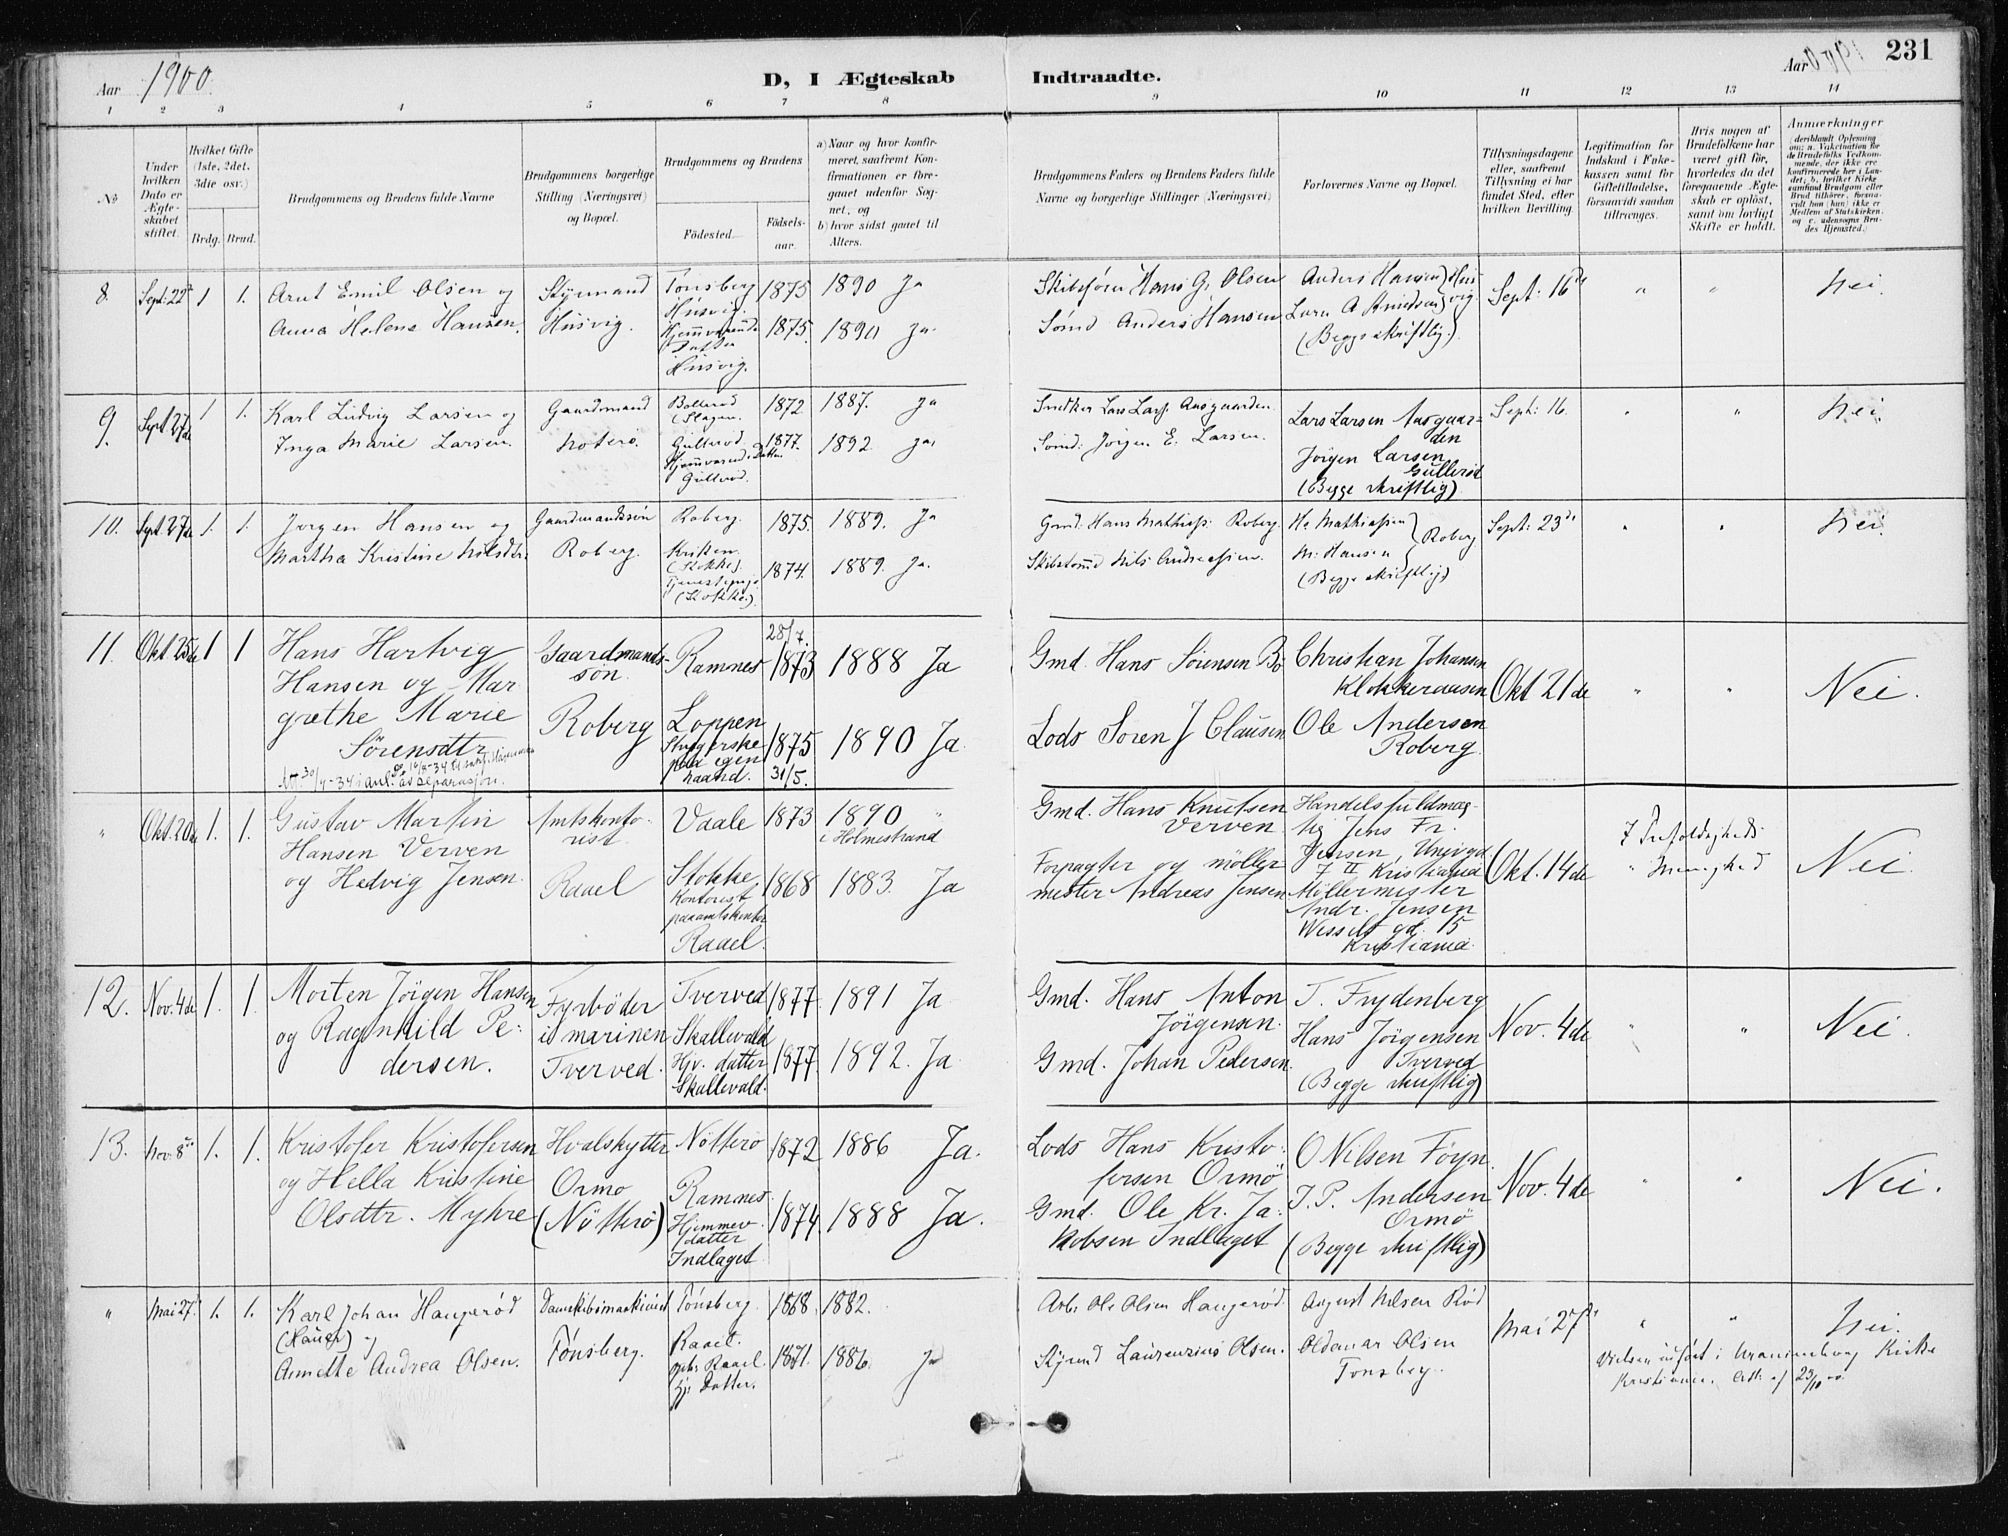 Aar 1900.
D, I Ægteskab Indtraadte.
Aar 1900. 231
1 2 3 4 5 6 7 8 9 10 11 12 13 14
No
Under hvilken Dato er Ægteskabet stiftet.
Hvilket Gifte (1ste, 2det, 3die osv.)
Brdg. Brud.
Brudgommens og Brudens fulde Navne
Brudgommens borgerlige Stilling (Næringsvei) og Bopæl.
Brudgommens og Brudens
Fødested.
Fødselsaar.
a) Naar og hvor konfirmeret, saafremt Konfirmationen er foregaaet udenfor Sognet, og
b) hvor sidst gaaet til Alters.
Brudgommens Faders og Brudens Faders fulde Navne og borgerlige Stillinger (Næringsvei)
Forlovernes Navne og Bopæl.
Tillysningsdagene eller, saafremt Tillysning ei har fundet Sted, efter hvilken Bevilling.
Legitimation for Indskud i Enkekassen samt for Giftetilladelse, forsaavidt saadan tiltrænges.
Hvis nogen af Brudefolkene har været gift før, hvorledes da det foregaaende Ægteskab er opløst, samt om lovligt Skifte er holdt.
Anmærkninger deriblandt Oplysning om: a. Vakcination for de Brudefolks Vedkommende, der ikke ere konfirmerede her i Landet; b. hvilket Kirkesamfund Brudgom eller Brud tilhører, forsaavidt han (hun) ikke er Medlem af Statskirken, og c. udensogns Brudes Hjemsted.)
8. Sept: 22de 1 1. Arnt Emil Olsen og
Anna Helene Hansen.
Styrmand
Husvig.
Tønsberg
Husvig.
Hjemværende
Datter
Husvig.
1875 1890 Ja
1875. 1890 Ja.
Skibsfører Hans G. Olsen
Sømd Anders Hansen
Anders Hansen } Hus
Lars A Amundsen } vig
(Begge skriftlig.)
Sept: 16de " " Nei.
9. Sept 27de 1 1. Karl Ludvig Larsen og
Inga Marie Larsen.
Gaardmand
Noterø.
Bollerød
(Slagen.
Gullerød
Hjemværende Datter
Gullerød.
1872 1887. Ja
1877. 1892. Ja.
Snedker Lars Lars. Aasgaarden
Sømd. Jørgen E. Larsen.
Lars Larsen Aasgaarden
Jørgen Larsen
Gullerød
(Begge skriftlig)
Sept: 16. " " Nei
10. Sept. 27de 1. 1. Jørgen Hansen og
Martha Kristine Nilsdtr.
Gaardmandssøn
Roberg.
Roberg.
Kriken
(Stokke).
Tjenestepige
(Stokke).
1875. 1889. Ja
1874. 1889. Ja.
Gmd. Hans Mathias. Roberg.
Skibstømd Nils Andreassen.
Hs Mathiassen }
M. Hansen } Roberg
(Begge skriftlig)
Sept: 23de " " Nei.
11. Okt 25de 1 1 Hans Hartvig
Hansen og Mar
grethe Marie
Sørensdtr
Gaardmands-
søn.
Roberg
Ramnes
Loppen
Strygerske
paa egen
haand.
28/7.
1873 1888 Ja
1875 1890 Ja.
31/5.
Gmd. Hans Sørensen Bø
Lods Søren J Clausen
Christian Johansen
Klokkeraasen
Ole Andersen
Roberg.
Okt 21de " " Nei.
" Okt. 20de 1. 1. Gustav Martin
Hansen Verven
og Hedvig Jensen.
Amtskonto-
rist
Raael
Vaale
Stokke
Kontorist
paa amtskontor
Raael.
1873 1890 "
i Holmestrand
1868 1883. Ja
Gmd. Hans Knutsen
Verven.
Forpagter og møller
mester Andreas Jensen
Handelsfuldmæg-
tig Jens Fr.
Jensen,
7 II Kristiania
Møllermester
Andr. Jensen
Wessels gd. 15
Kristiania.
Okt. 14de Trefoldigheds
" Menighed Nei.
12. Nov. 4de 1. 1. Morten Jørgen Hansen
og Ragnhild Pe-
dersen.
Fyrbøder
i marinen
Tverved.
Tverved
Skallevald
Hjv. datter
Skallevald.
1877. 1891 Ja
1877. 1892. Ja
Gmd. Hans Anton
Jørgensen.
Gmd. Johan Pedersen.
T. Frydenberg
Hans Jørgensen
Tverved
(Begge skriftlig)
Nov. 4de " " Nei.
13. Nov. 8de 1. 1. Kristofer Kristofersen
og Hella Kristine
Olsdtr. Myhre
Hvalskytter
Ormø
(Nøtterø)
Nøtterø
Ramnes
Hjemmev.
datter
Indlaget
1872 1886 Ja.
1874. 1888 Ja.
Lods Hans Kristo-
fersen Ormø
Gmd. Ole Kr. Ja-
kobsen Indlaget
O Nilsen Føyn.
J. P. Andersen
Ormø
(Begge skriftlig)
Nov. 4de " " Nei.
" Mai 27. 1. 1. Karl Johan Haugerød
(Hauer) og
Annette Andrea Olsen.
Damskibsmaskinist
Tønsberg.
Tønsberg.
Raael.
oph: Raael
hj: Datter.
1868. 1882.
1871. 1886. Ja
Arb. Ole Olsen Haugerød.
Styrmd Laurenzius Olsen.
August Nilsen Rød
Oldemar Olsen
Tønsberg.
Mai 27de " " Nei.
Vielsen udført i Uranienborg Kirke
Kristiania. Att. af 23/10 -0.